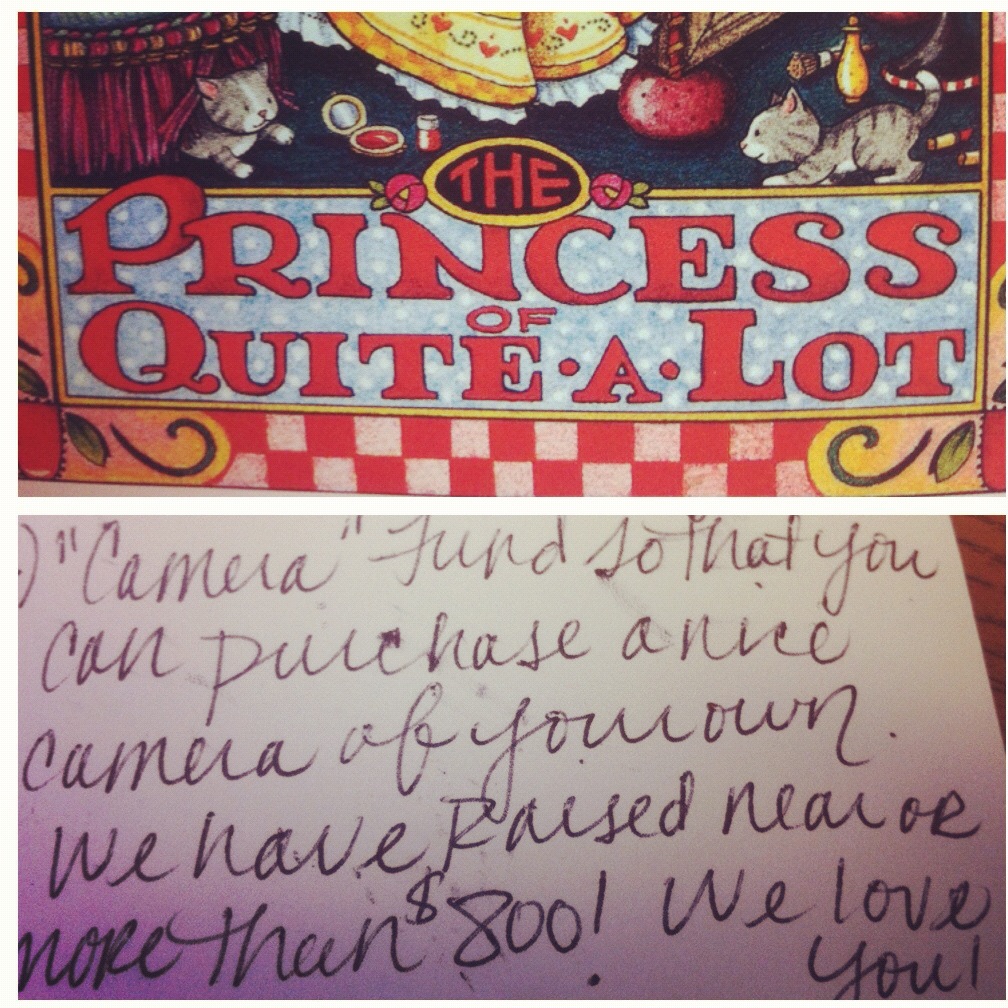 THE
PRINCESS
OF
QUITE·A·LOT
) "Camera" Fund so that you
can purchase a nice
camera of your own.
We have Raised near or
more than $800! We love
you!